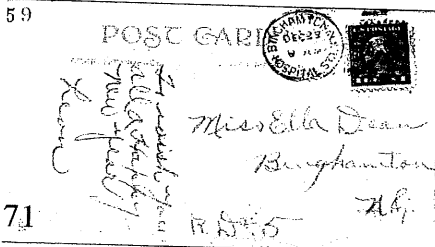 59
POST CARD
BINGHAMTON, N.Y.
DEC 29
HOSPITAL STA.
I wish you
all a Happy
New Year
Leon
Miss Ella Dean
Binghamton
N.Y.
R.D. 5
71